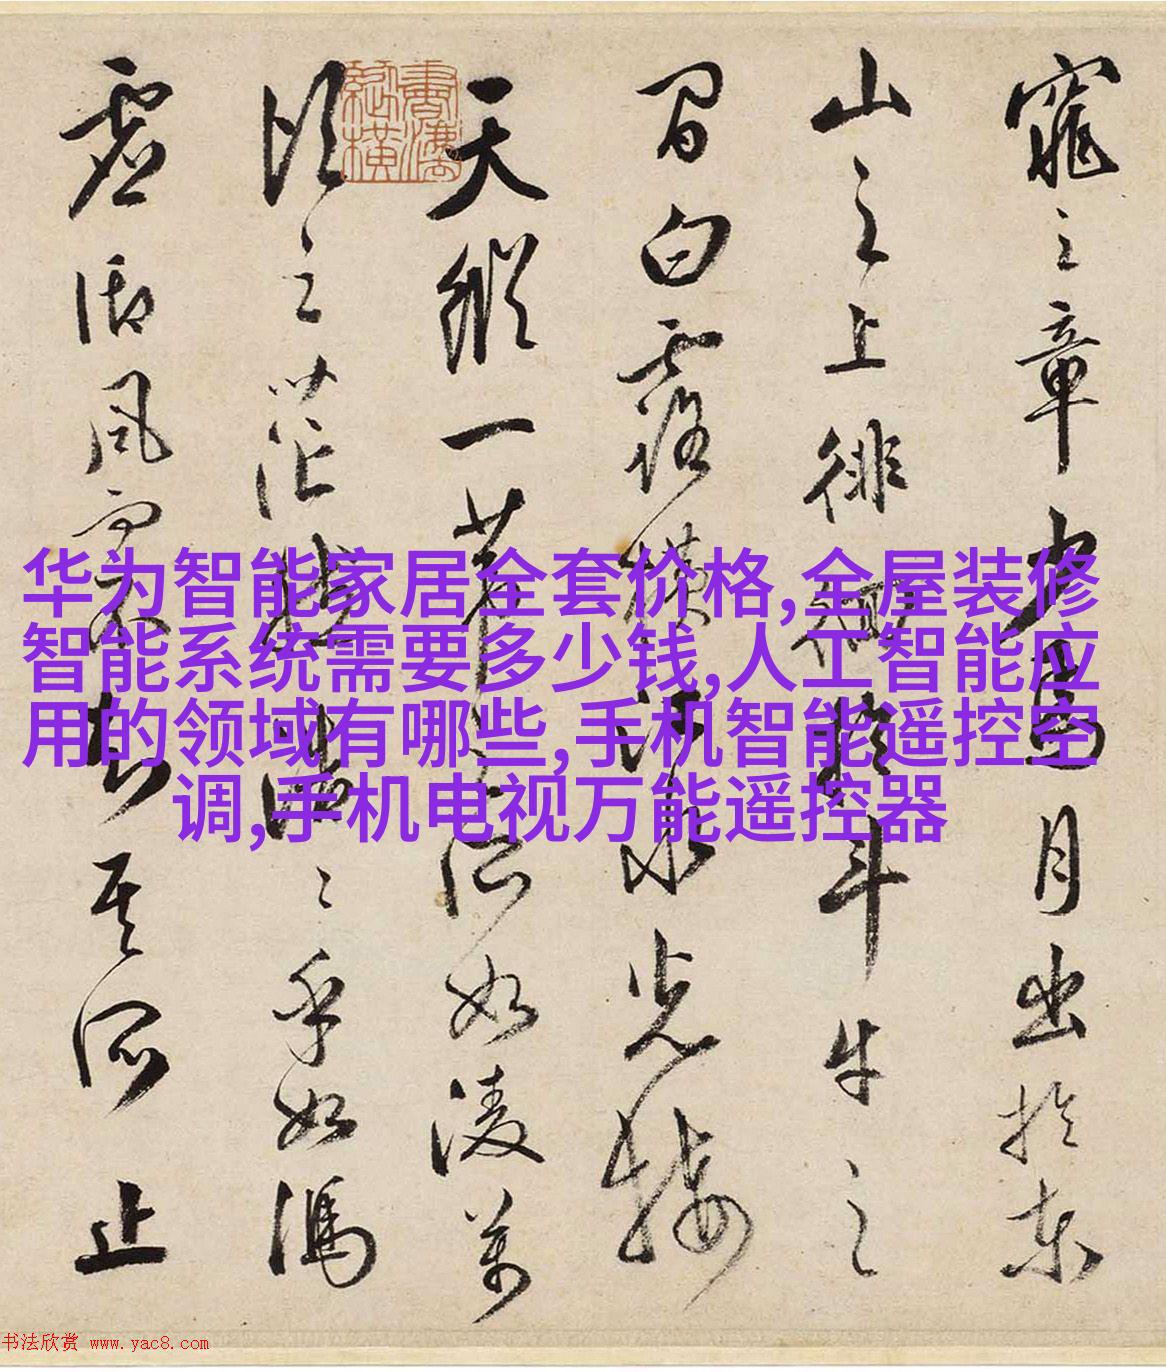 窕之章少焉月出於東
山之上徘徊於斗牛之
間白露横江水光接
天縱一葦之所如凌萬
頃之茫然浩〻乎如馮
虛御風而不知其所止
华为智能家居全套价格,全屋装修
智能系统需要多少钱,人工智能应
用的领域有哪些,手机智能遥控空
调,手机电视万能遥控器
书法欣赏 www.yac8.com